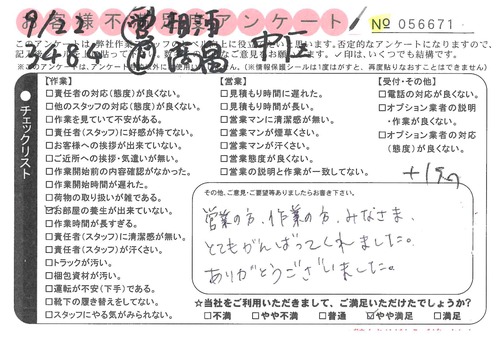 お客様不満足度アンケート
№ 056671
9/22 営 相澤 中区
3484 作 後橋
【作業】
□責任者の対応(態度)が良くない。
□他のスタッフの対応(態度)が良くない。
□作業を見ていて不安がある。
□責任者(スタッフ)に好感が持てない。
□お客様への挨拶が出来ていない。
□ご近所への挨拶・気遣いが無い。
□作業開始前の内容確認がなかった。
□作業開始時間が遅れた。
□荷物の取り扱いが雑である。
☑お部屋の養生が出来ていない。
□作業時間が長すぎる。
□責任者(スタッフ)に清潔感が無い。
□責任者(スタッフ)が汗くさい。
□トラックが汚い。
□梱包資材が汚い。
□運転が不安(下手)である。
□靴下の履き替えをしてない。
□スタッフにやる気がみられない。
【営業】
□見積もり時間に遅れた。
□見積もり時間が長い。
□営業マンに清潔感が無い。
□営業マンが煙草くさい。
□営業マンが汗くさい。
□営業態度が良くない。
□営業の説明と作業が一致してない。
【受付・その他】
□電話の対応が良くない。
□オプション業者の説明
・作業が良くない。
□オプション業者の対応
(態度)が良くない。
チェックリスト
その他、ご意見・ご要望等ありましたらお書き下さい。
営業の方、作業の方、みなさま、
とてもがんばってくれました。
ありがとうございました。
☆当社をご利用いただきまして、ご満足いただけたでしょうか?
□不満 □やや不満 □普通 ☑やや満足 □満足